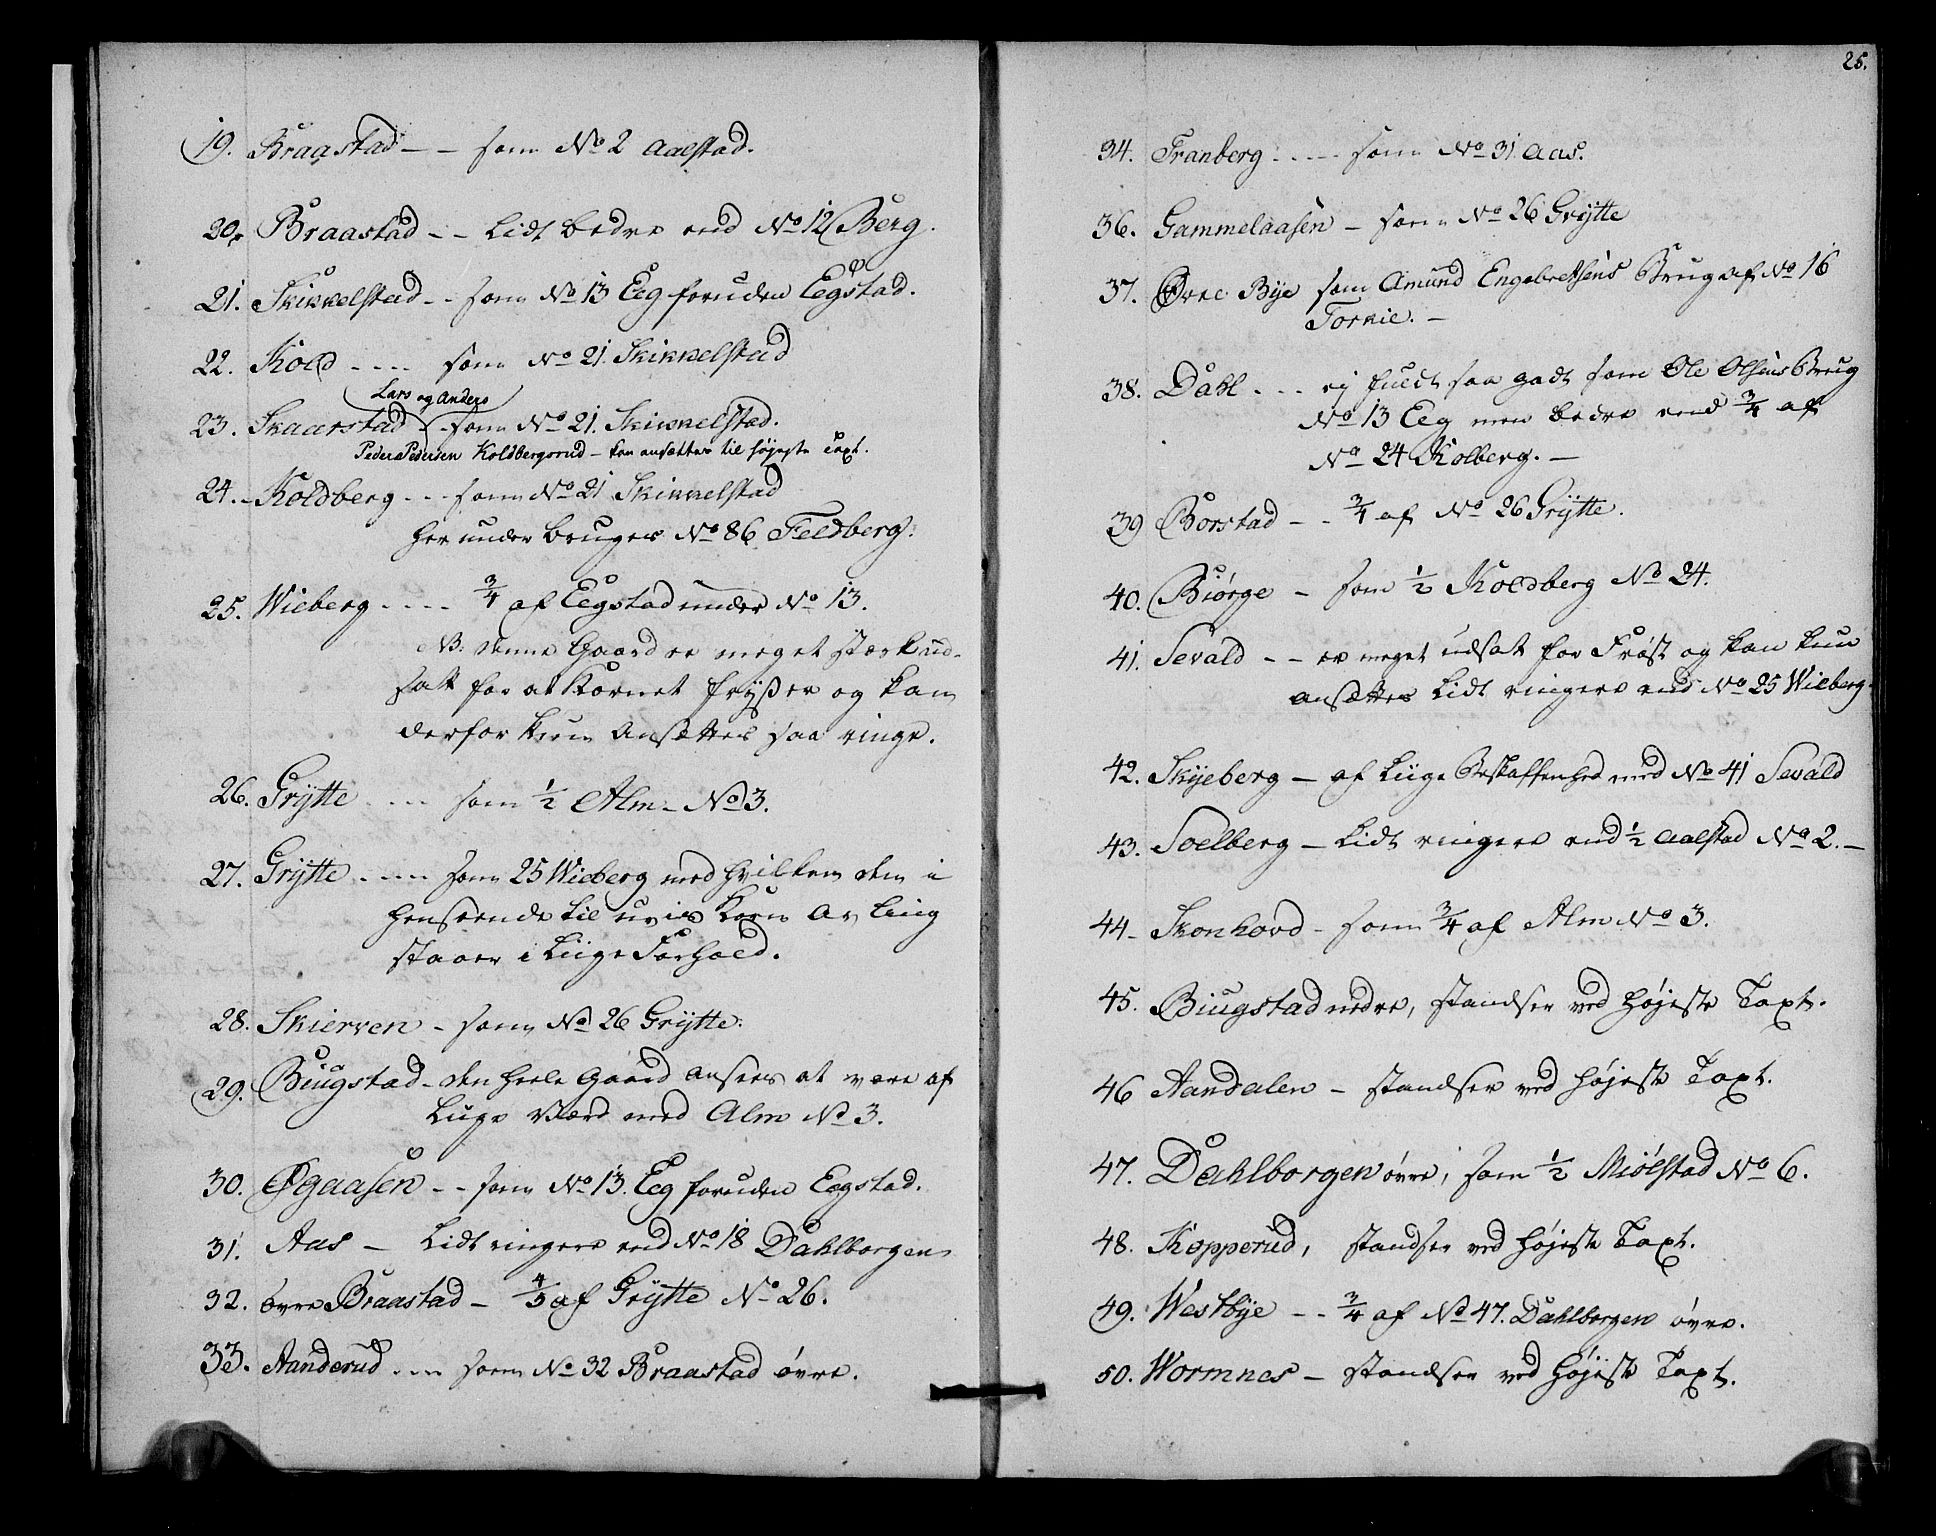 19. Braastad - - som No 2 Aalstad.
20. Braastad - - Lidt bedre end No 12 Berg.
21. Skikkelstad - - som No 13 Eeg foruden Eegstad.
22. Kold - - - - som No 21. Skikkelstad
Lars og Anders
23. Skaarstad - som No 21. Skikkelstad.
Peder Pedersen Koldbergsrud - kan ansættes til højeste Taxt.
24. Koldberg - - - som No 21 Skikkelstad
her under bruges No 86 Feldberg.
25. Wieberg - - - - 3/4 af Eegstad under No 13.
NB: denne Gaard er meget stærk ud-
satt for at Kornet frÿser og kan
derfor kun Ansættes saa ringe.
26. Grÿtte - - - som 1/2 Alm - No 3.
27. Grÿtte - - - - som 25 Wieberg med hvilken den i
henseende til uvis Korn Avling
staaer i Liige Forhold.
28. Skierven - som No 26 Grÿtte.
29. Biugstad - den heele Gaard ansees at være af
Liige Værd med Alm No 3.
30. Øgaasen - - som No 13. Eeg foruden Eegstad.
31. Aas - Lidt ringere end No 18 Dahlborgen
32. øvre Braastad - 4/5 af Grÿtte No 26.
33. Aanderud - - - som No 32 Braastad øvre.
25.
34. Tranberg - - - - som No 31. Aas.
36. Gammelaasen - som No 26 Grÿtte
37. Øvre Bÿe som Amund Engebretsens Brug af No 16
Tokie. -
38. Dahl - - - ej fuldt saa godt som Ole Olsens Brug
No 13 Eeg men bedre end 3/4 af
No 24 Kolberg. -
39 Borstad - - 3/4 af No 26 Grÿtte.
40. Biørge - som 1/2 Koldberg No 24.
41. Sevald - - er meget udsat for Frost og kan kun
ansættes Lidt ringere end No 25 Wieberg.
42. Skÿeberg - af Liige Beskaffenhed med No 41 Sevald
43. Soelberg - Lidt ringere end 1/2 Aalstad No 2. -
44 - Skonhovd - som 3/4 af Alm No 3.
45. Biugstad nedre, standser ved højeste Taxt.
46 Aandalen - standser ved højeste Taxt.
47. Dahlborgen øvre, som 1/2 Miølstad No 6.
48. Kopperud, standser ved højeste Taxt.
49. Westbÿe - - 3/4 af No 47. Dahlborgen øvre.
50. Wormnes - standser ved højeste Taxt.